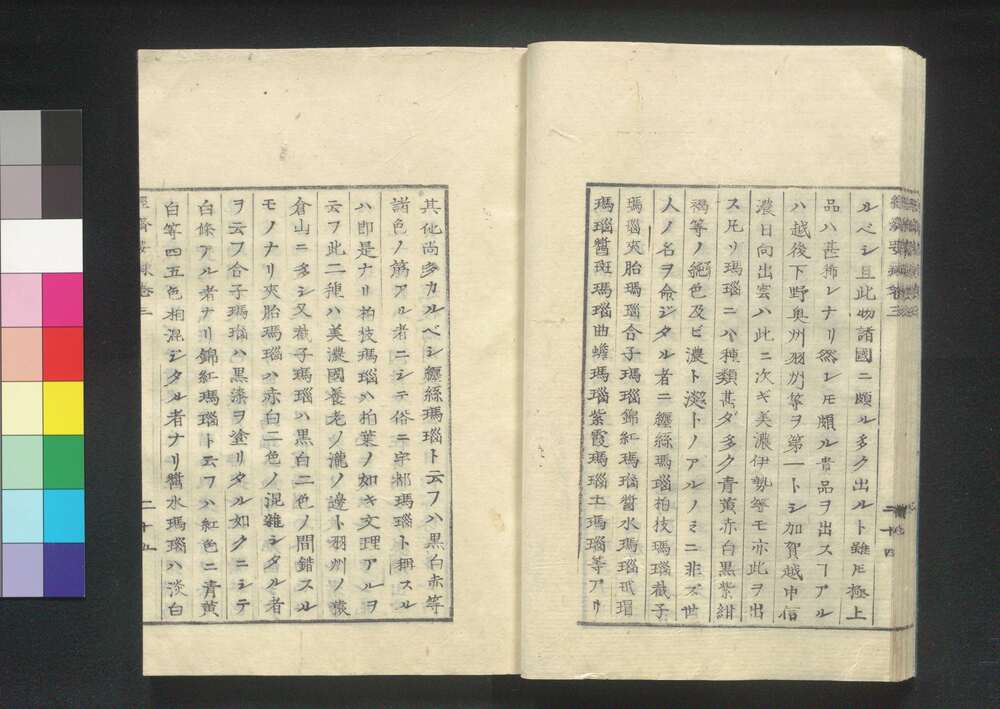 ルベシ且此物諸國ニ頗ル多ク出ルト雖𪜈極上
品ハ甚稀レナリ然レ𪜈頗ル貴品ヲ出スヿアル
ハ越後下野奥州羽州等ヲ第一トシ加賀越中信
濃日向出雲ハ此ニ次ギ美濃伊勢等モ亦此ヲ出
ス凡リ瑪瑙ニハ種類甚ダ多ク青黄赤白黒紫紺
褐等ノ絕色及ビ濃ト淡トノアルノミニ非ズ世
人ノ名ヲ命ジタル者ニ纏絲瑪瑙柏枝瑪瑙截子
瑪瑙夾胎瑪瑙合子瑪瑙錦紅瑪瑙醬水瑪瑙玳瑁
瑪瑙醬斑瑪瑙曲蟮瑪瑙紫霞瑪瑙土瑪瑙等アリ
二十四
其他尚多カルベシ纏絲瑪瑙ト云フハ黒白赤等
諸色ノ篶アル者ニシテ俗ニ字都瑪瑙ト稱スル
ハ即是ナリ柏枝瑪瑙ハ柏葉ノ如キ文理アルヲ
云フ此二種ハ美濃國養老ノ瀧ノ邊ト羽州ノ猿
倉山ニ多シ又截子瑪瑙ハ黒白二色ノ間錯スル
モノナリ夾胎瑪瑙ハ赤白二色ノ混雜シタル者
ヲ云フ合子瑪瑙ハ黒漆ヲ塗リタル如クニシテ
白條アル者ナリ錦紅瑪瑙ト云フハ紅色ニ青黄
白等四五色相混ジタル者ナリ醬水瑪瑙ハ淡白
經濟要録卷三
二十五